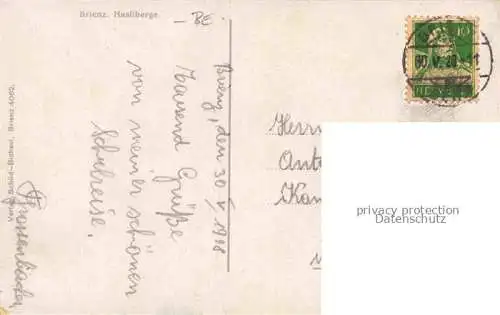 Brienz. Hasliberge
- BE
Brienz, den 30 V 1928
Tausend Grüße
von meiner schönen
Schulreise.
Verlag Schild-Bichsel, Brienz 4062.
10
30.V.28
HELVETIA
Herrn
Kan
privacy protection
Datenschutz